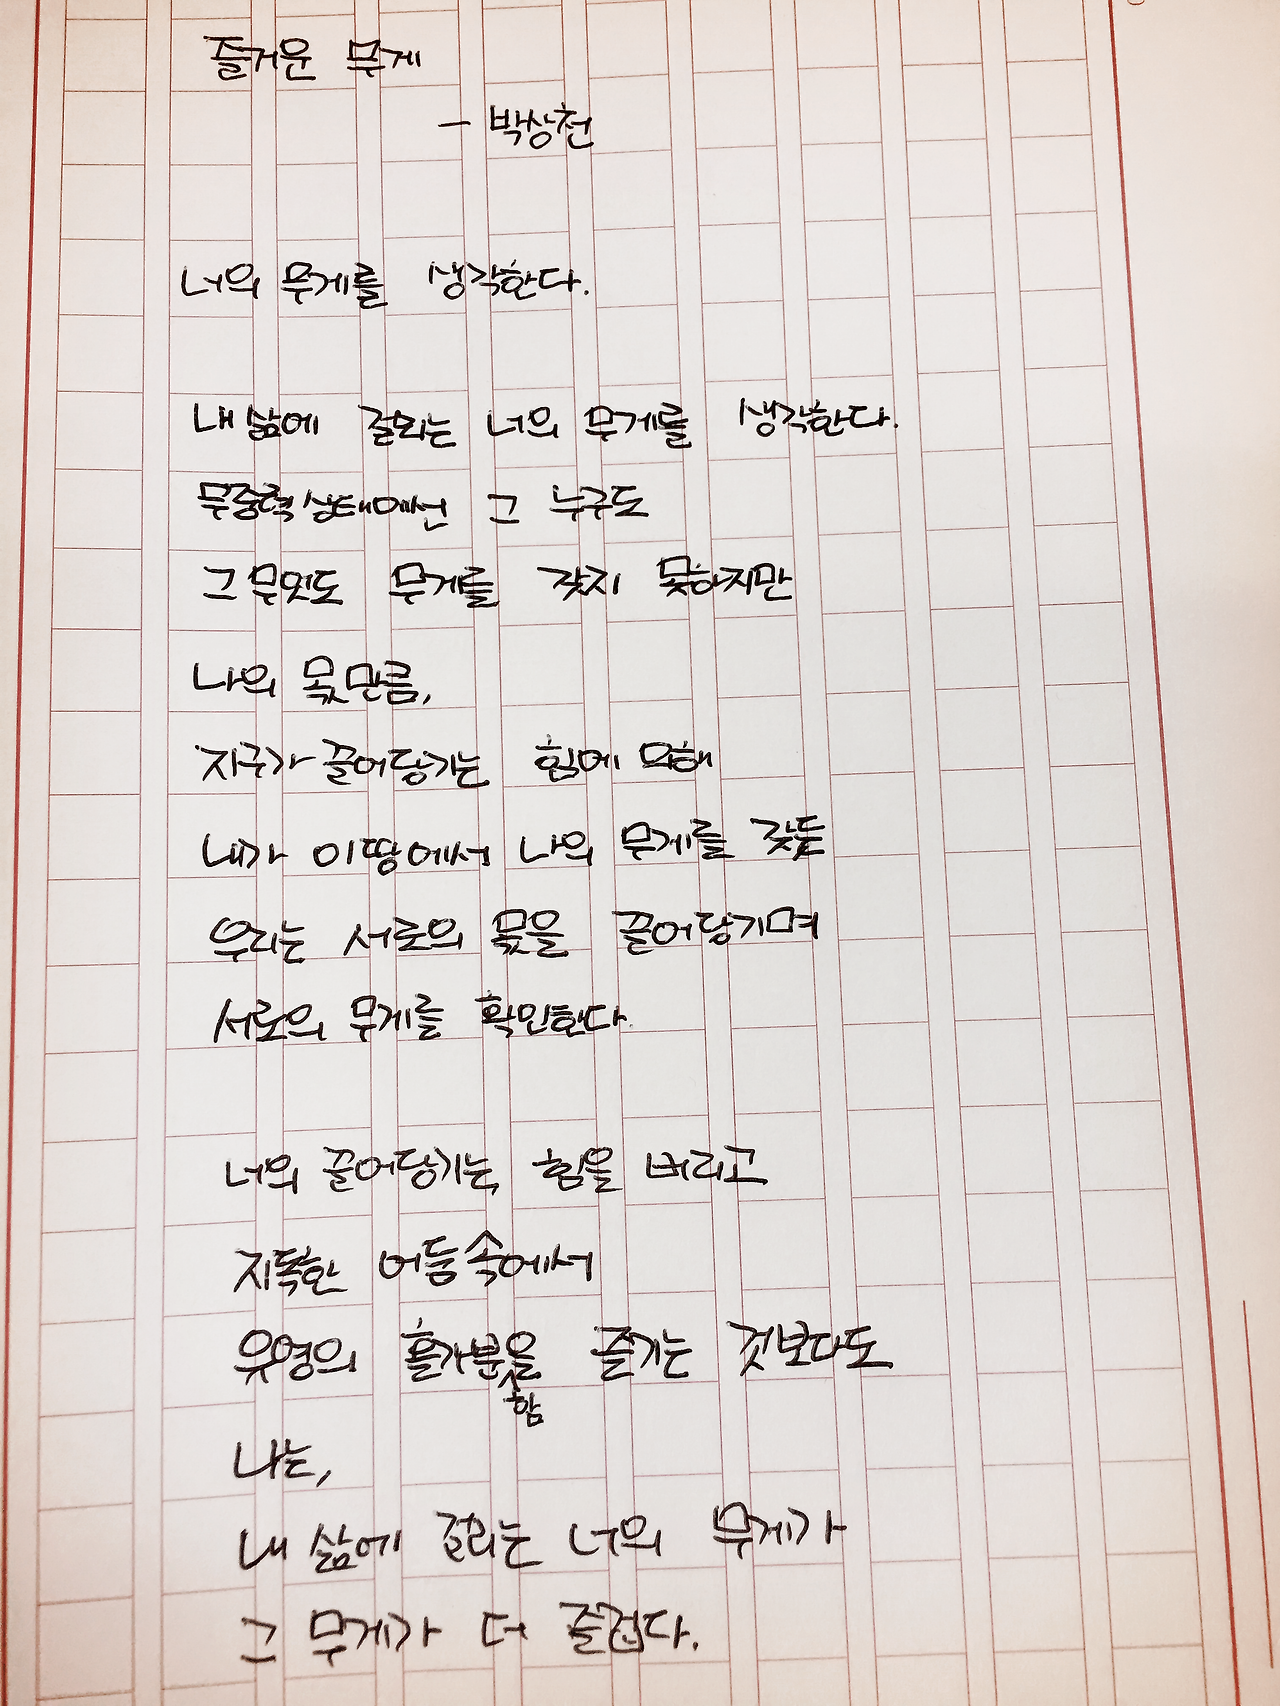 즐거운 무게
- 박상천
너의 무게를 생각한다.
내 삶에 걸리는 너의 무게를 생각한다.
무중력 상태에선 그 누구도
그 무엇도 무게를 갖지 못하지만
나의 몫만큼,
지구가 끌어당기는 힘에 의해
내가 이 땅에서 나의 무게를 갖듯
우리는 서로의 몫을 끌어당기며
서로의 무게를 확인한다.
너의 끌어당기는 힘을 버리고
지독한 어둠속에서
유영의 홀가분을 즐기는 것보다도
함
나는,
내 삶에 걸리는 너의 무게가
그 무게가 더 즐겁다.